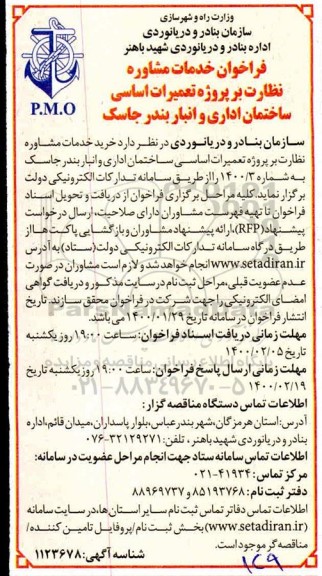 وزارت راه و شهرسازی
سازمان بنادر و دریانوردی
اداره بنادر و دریانوردی شهید باهنر
P.M.O
فراخوان خدمات مشاوره
نظارت بر پروژه تعمیرات اساسی
ساختمان اداری و انبار بندر جاسک
سازمان بنادر و دریانوردی در نظر دارد خرید خدمات مشاوره
نظارت بر پروژه تعمیرات اساسی ساختمان اداری و انبار بندر جاسک
به شماره ۱۴۰۰/۳ را از طریق سامانه تدارکات الکترونیکی دولت
برگزار نماید. کلیه مراحل برگزاری فراخوان از دریافت و تحویل اسناد
فراخوان تا تهیه فهرست مشاوران دارای صلاحیت، ارسال درخواست
پیشنهاد (RFP)، ارائه پیشنهاد مشاوران و بازگشایی پاکت ها از
طریق درگاه سامانه تدارکات الکترونیکی دولت (ستاد) به آدرس
www.setadiran.ir انجام خواهد شد و لازم است مشاوران در صورت
عدم عضویت قبلی، مراحل ثبت نام در سایت مذکور و دریافت گواهی
امضای الکترونیکی را جهت شرکت در فراخوان محقق سازند. تاریخ
انتشار فراخوان در سامانه تاریخ ۱۴۰۰/۰۱/۲۹ می باشد.
مهلت زمانی دریافت اسناد فراخوان: ساعت ۱۹:۰۰ روز یکشنبه
تاریخ ۱۴۰۰/۰۲/۰۵
مهلت زمانی ارسال پاسخ فراخوان: ساعت ۱۹:۰۰ روز یکشنبه تاریخ
۱۴۰۰/۰۲/۱۹
۰۲۱-۸۸۳۴۹۶۷۰-۵
اطلاعات تماس دستگاه مناقصه گزار:
آدرس: استان هرمزگان، شهر بندرعباس، بلوار پاسداران، میدان قائم، اداره
بنادر و دریانوردی شهید باهنر، تلفن: ۳۲۱۲۹۲۷۱-۰۷۶
اطلاعات تماس سامانه ستاد جهت انجام مراحل عضویت در سامانه:
مرکز تماس: ۴۱۹۳۴-۰۲۱
دفتر ثبت نام: ۸۵۱۹۳۷۶۸ و ۸۸۹۶۹۷۳۷
اطلاعات تماس دفاتر تماس ثبت نام سایر استان ها، در سایت سامانه
(www.setadiran.ir) بخش ثبت نام/پروفایل تامین کننده/
مناقصه گر موجود است.
شناسه آگهی: ۱۱۲۳۶۷۸